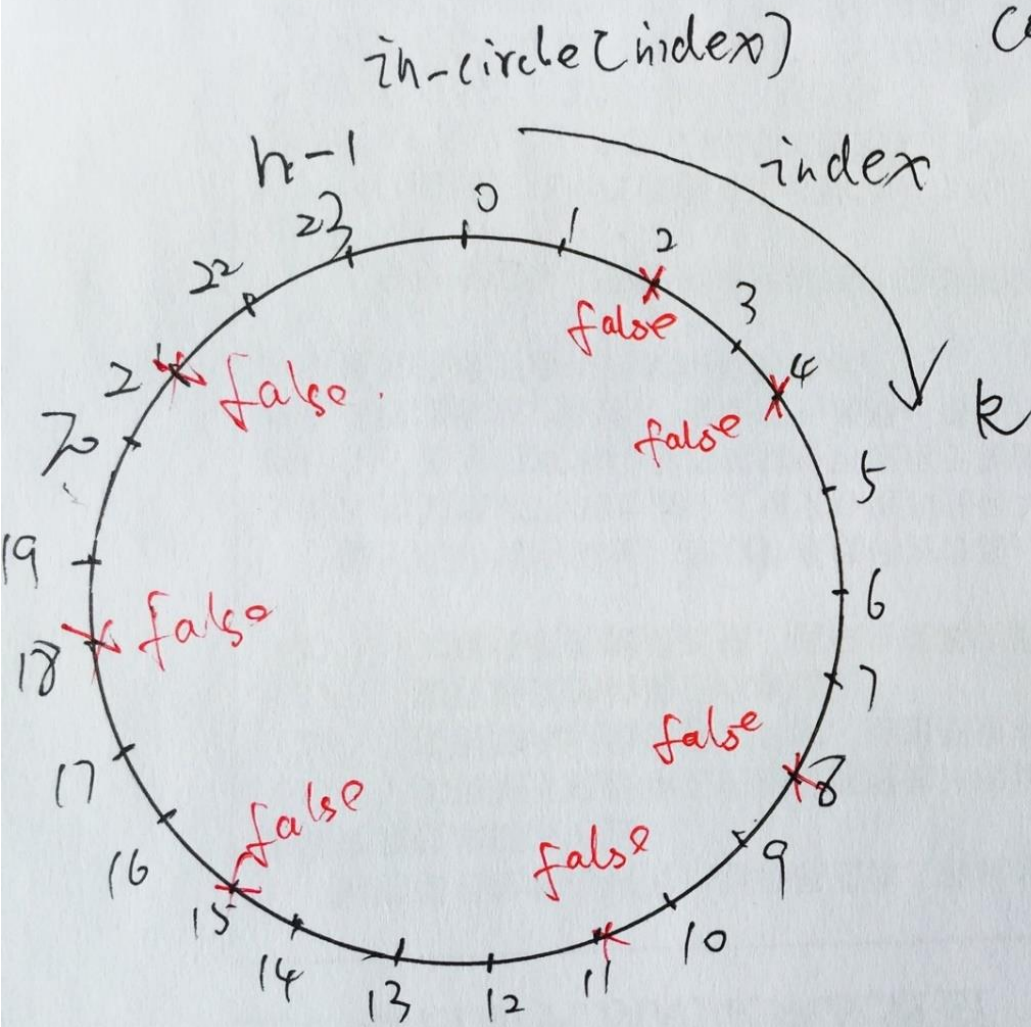 in-circle[index)
n-1
index
k
0
1
2
false
3
4
false
5
6
7
8
false
9
10
11
false
12
13
14
15
false
16
17
18
false
19
20
21
false
22
23